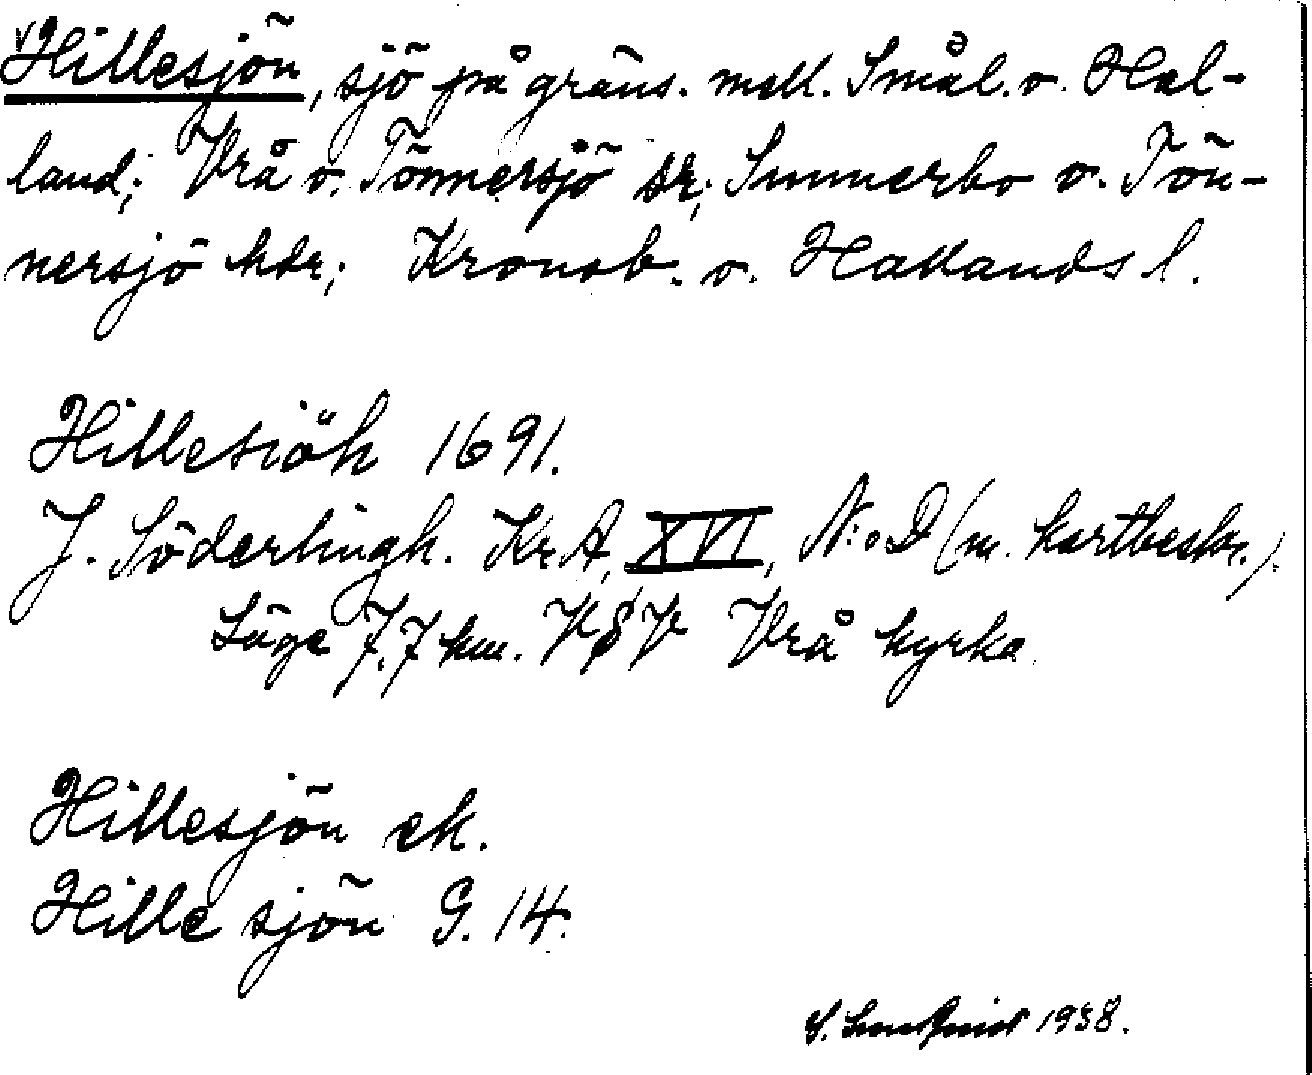 Hillesjön, sjö på gräns. mell. Smål. o. Hal-
land; Vrå o. Tönnersjö sr; Sunnerbo o. Tön-
nersjö hdr; Kronob. o. Hallands l.
Hillesiöh 1691.
J. Söderlingh. Kr.A, XVI, N:o D (m. kartbeskr.).
Läge 7,7 km. VSV Vrå kyrka.
Hillesjön ek.
Hille sjön G. 14.
1938.